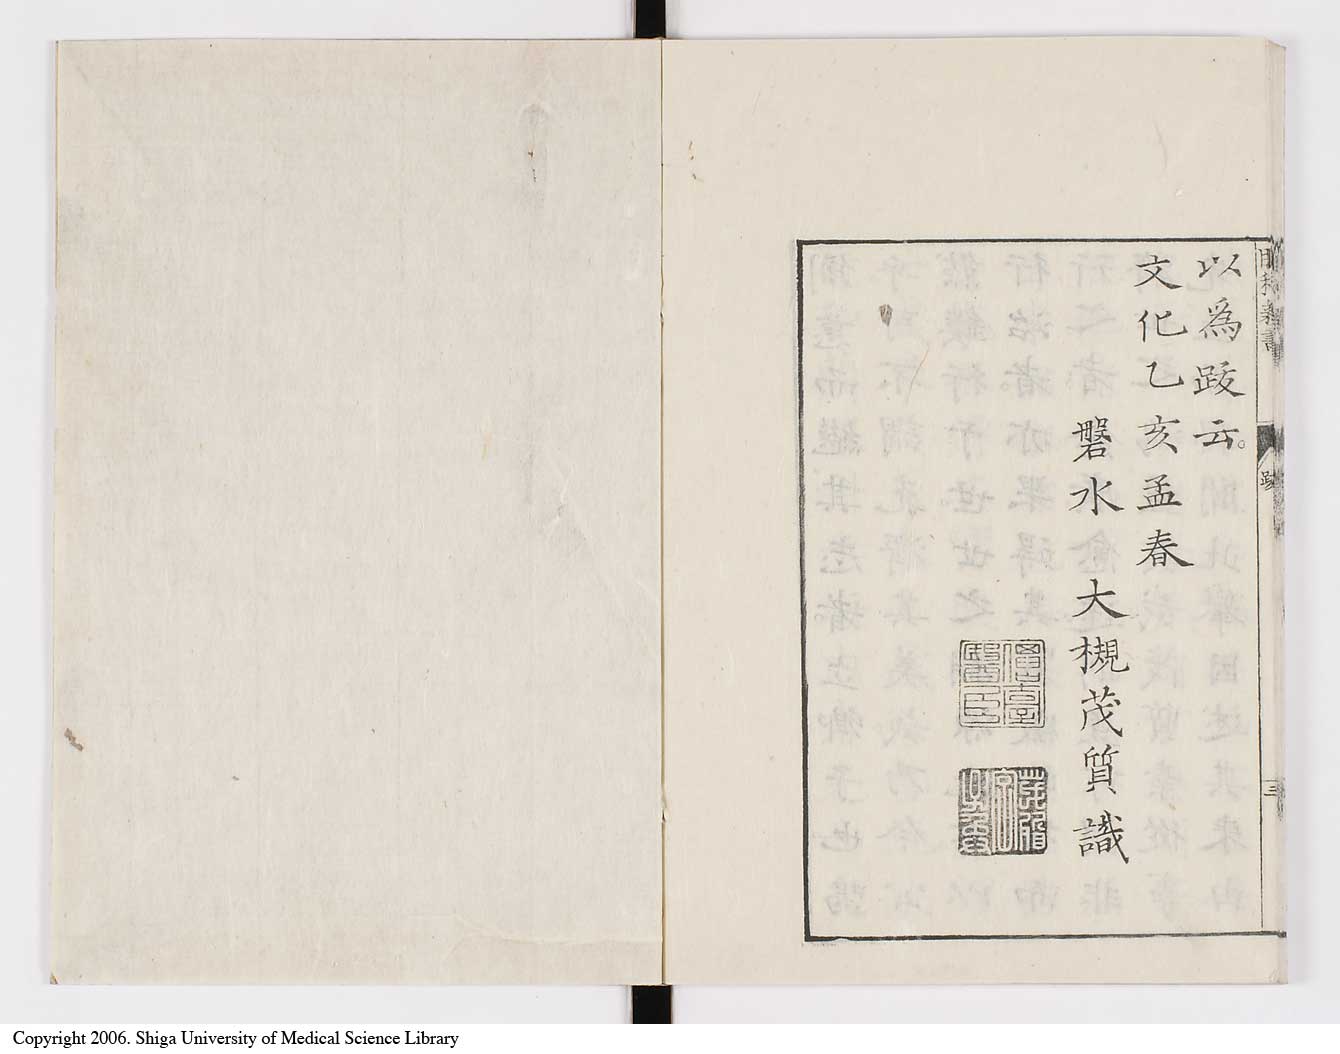 以爲跋云。
文化乙亥孟春
磐水 大槻茂質識
僊臺醫臣
跋
三
Copyright 2006. Shiga University of Medical Science Library